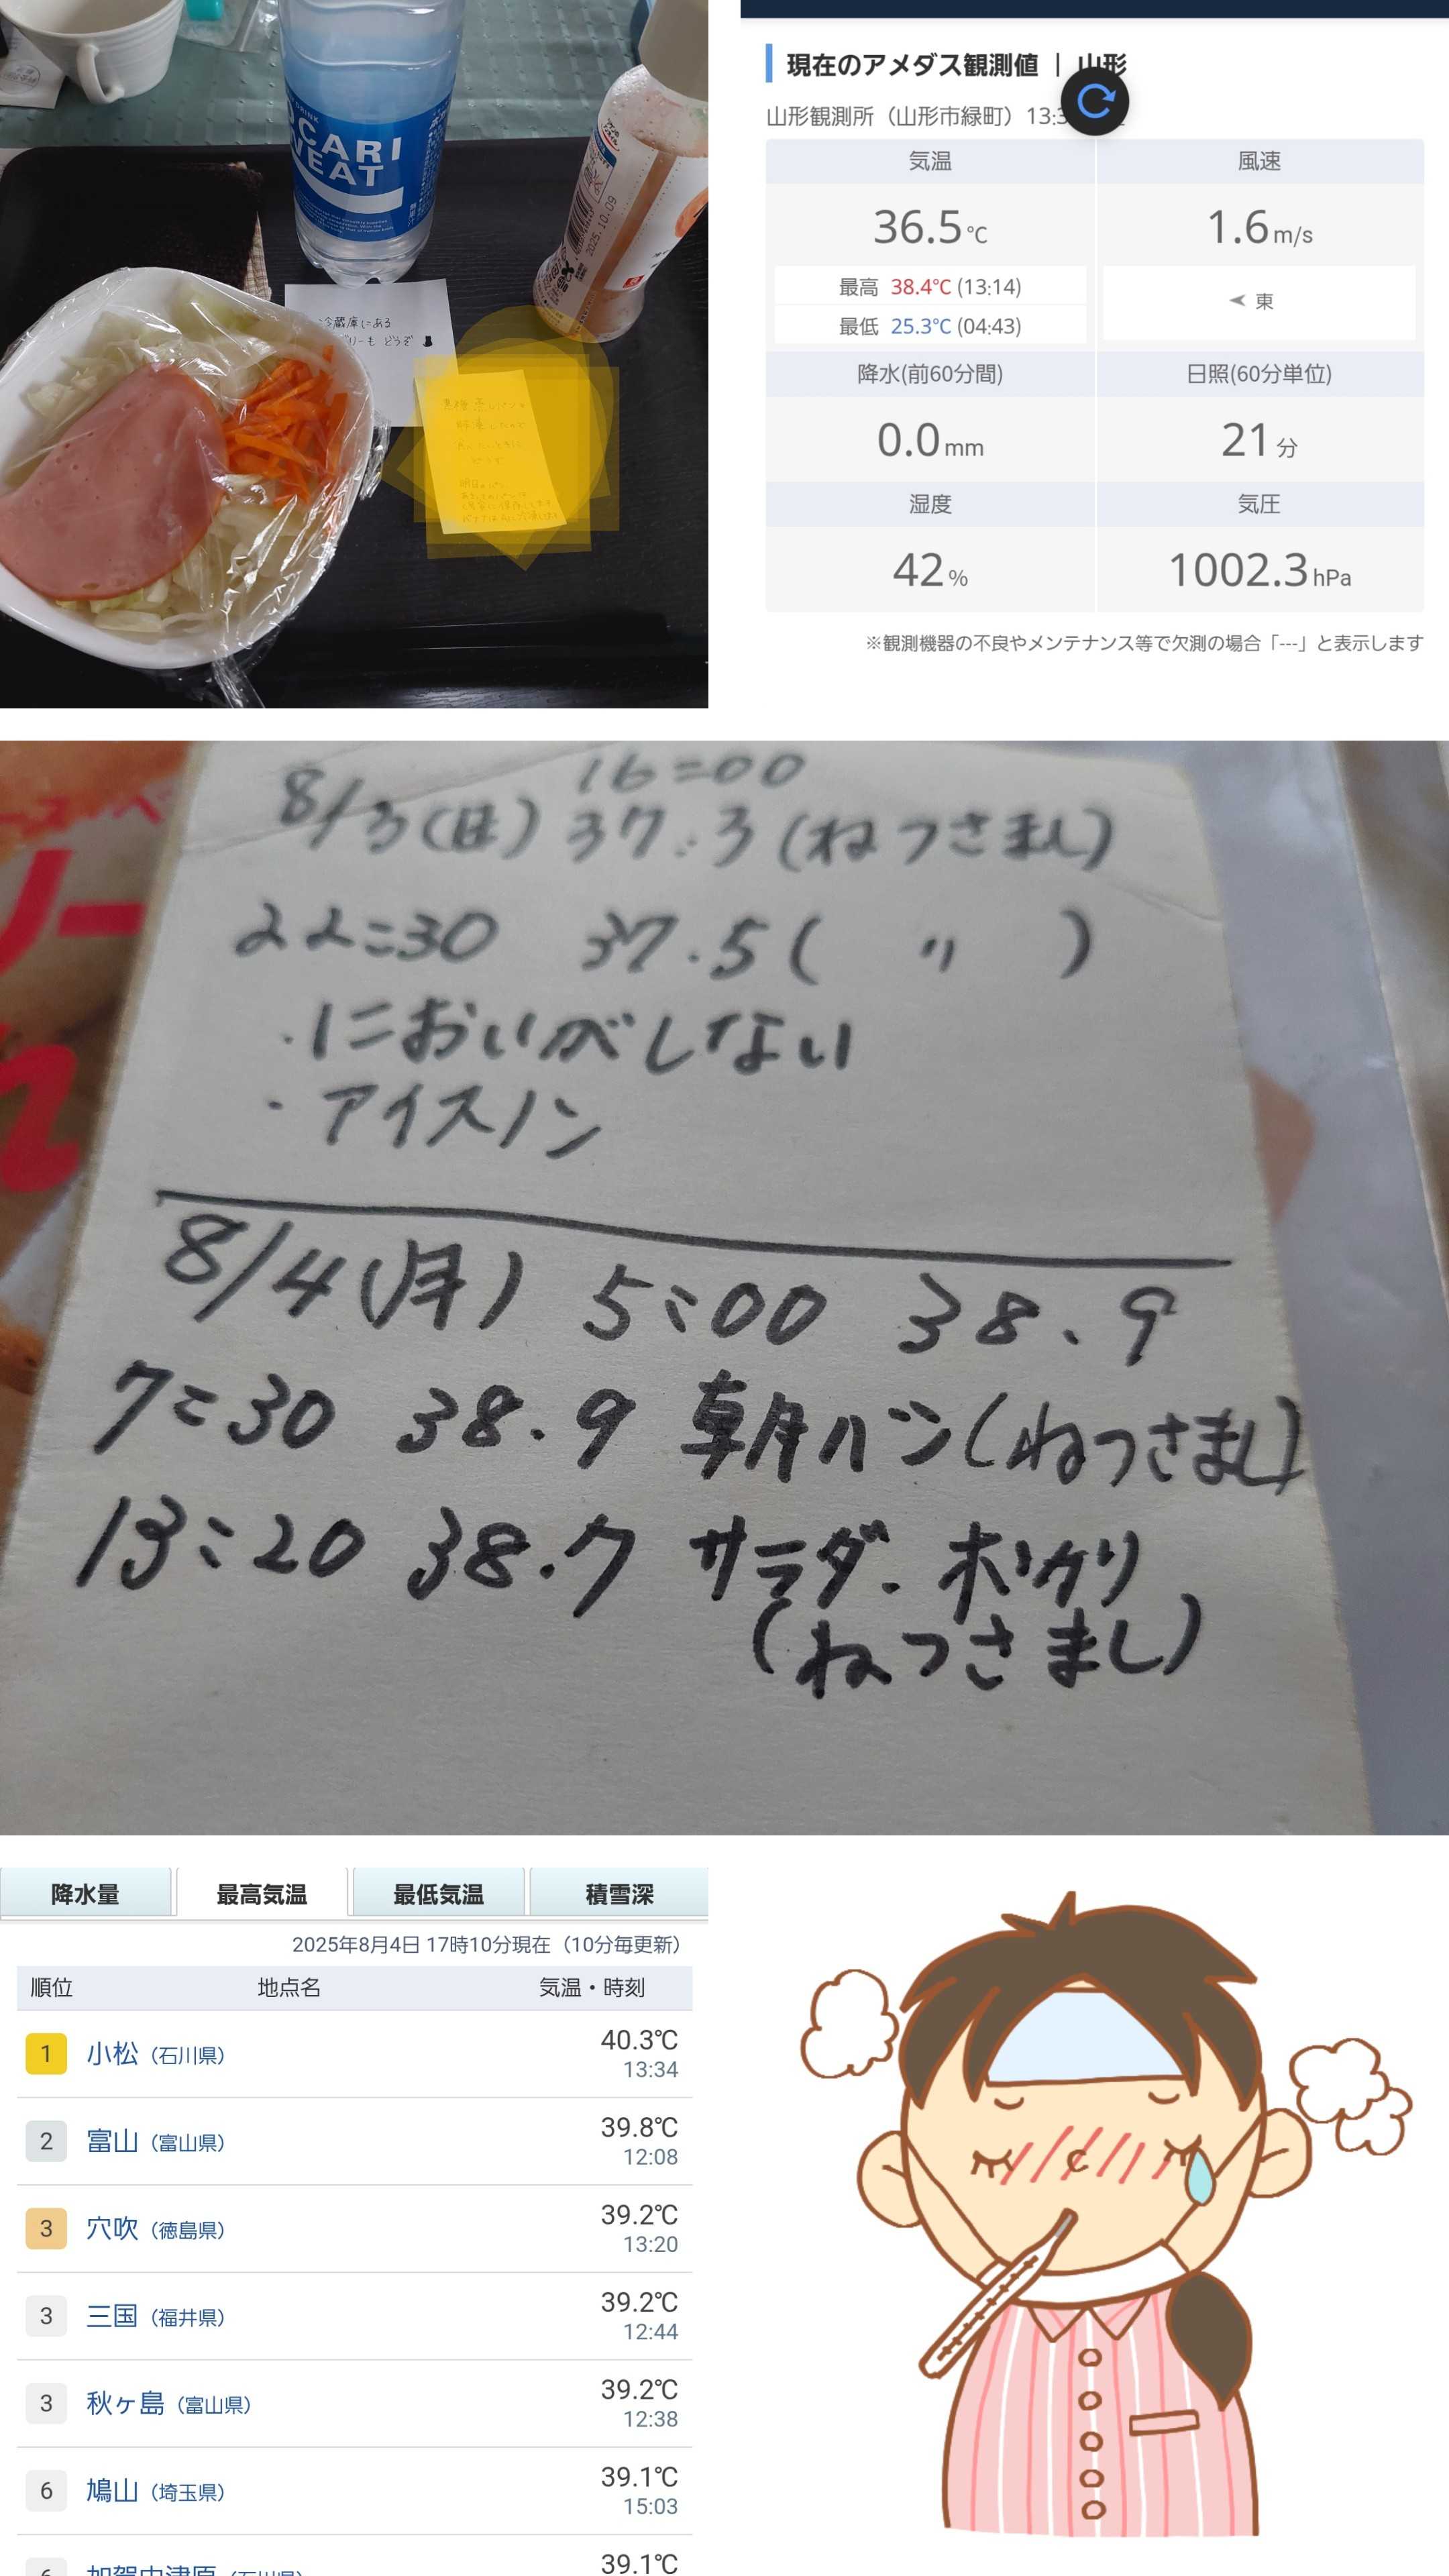 DRINK
OCARI
WEAT
2025.10.09
冷蔵庫にある
リーも どうぞ
現在のアメダス観測値 | 山形
山形観測所（山形市緑町）13:3
気温
風速
36.5℃
1.6m/s
最高 38.4℃ (13:14)
最低 25.3℃ (04:43)
東
降水(前60分間)
日照(60分単位)
0.0mm
21分
湿度
気圧
42%
1002.3hPa
※観測機器の不良やメンテナンス等で欠測の場合「---」と表示します
16:00
8/3(日) 37.3(ねつさまし)
22:30 37.5( 〃 )
・においがしない
・アイスノン
8/4(月) 5:00 38.9
7:30 38.9 朝パン(ねつさまし)
13:20 38.7 サラダ、ポカリ
(ねつさまし)
降水量 最高気温 最低気温 積雪深
2025年8月4日 17時10分現在（10分毎更新）
順位 地点名 気温・時刻
1 小松（石川県） 40.3℃
13:34
2 富山（富山県） 39.8℃
12:08
3 穴吹（徳島県） 39.2℃
13:20
3 三国（福井県） 39.2℃
12:44
3 秋ヶ島（富山県） 39.2℃
12:38
6 鳩山（埼玉県） 39.1℃
15:03
39.1℃